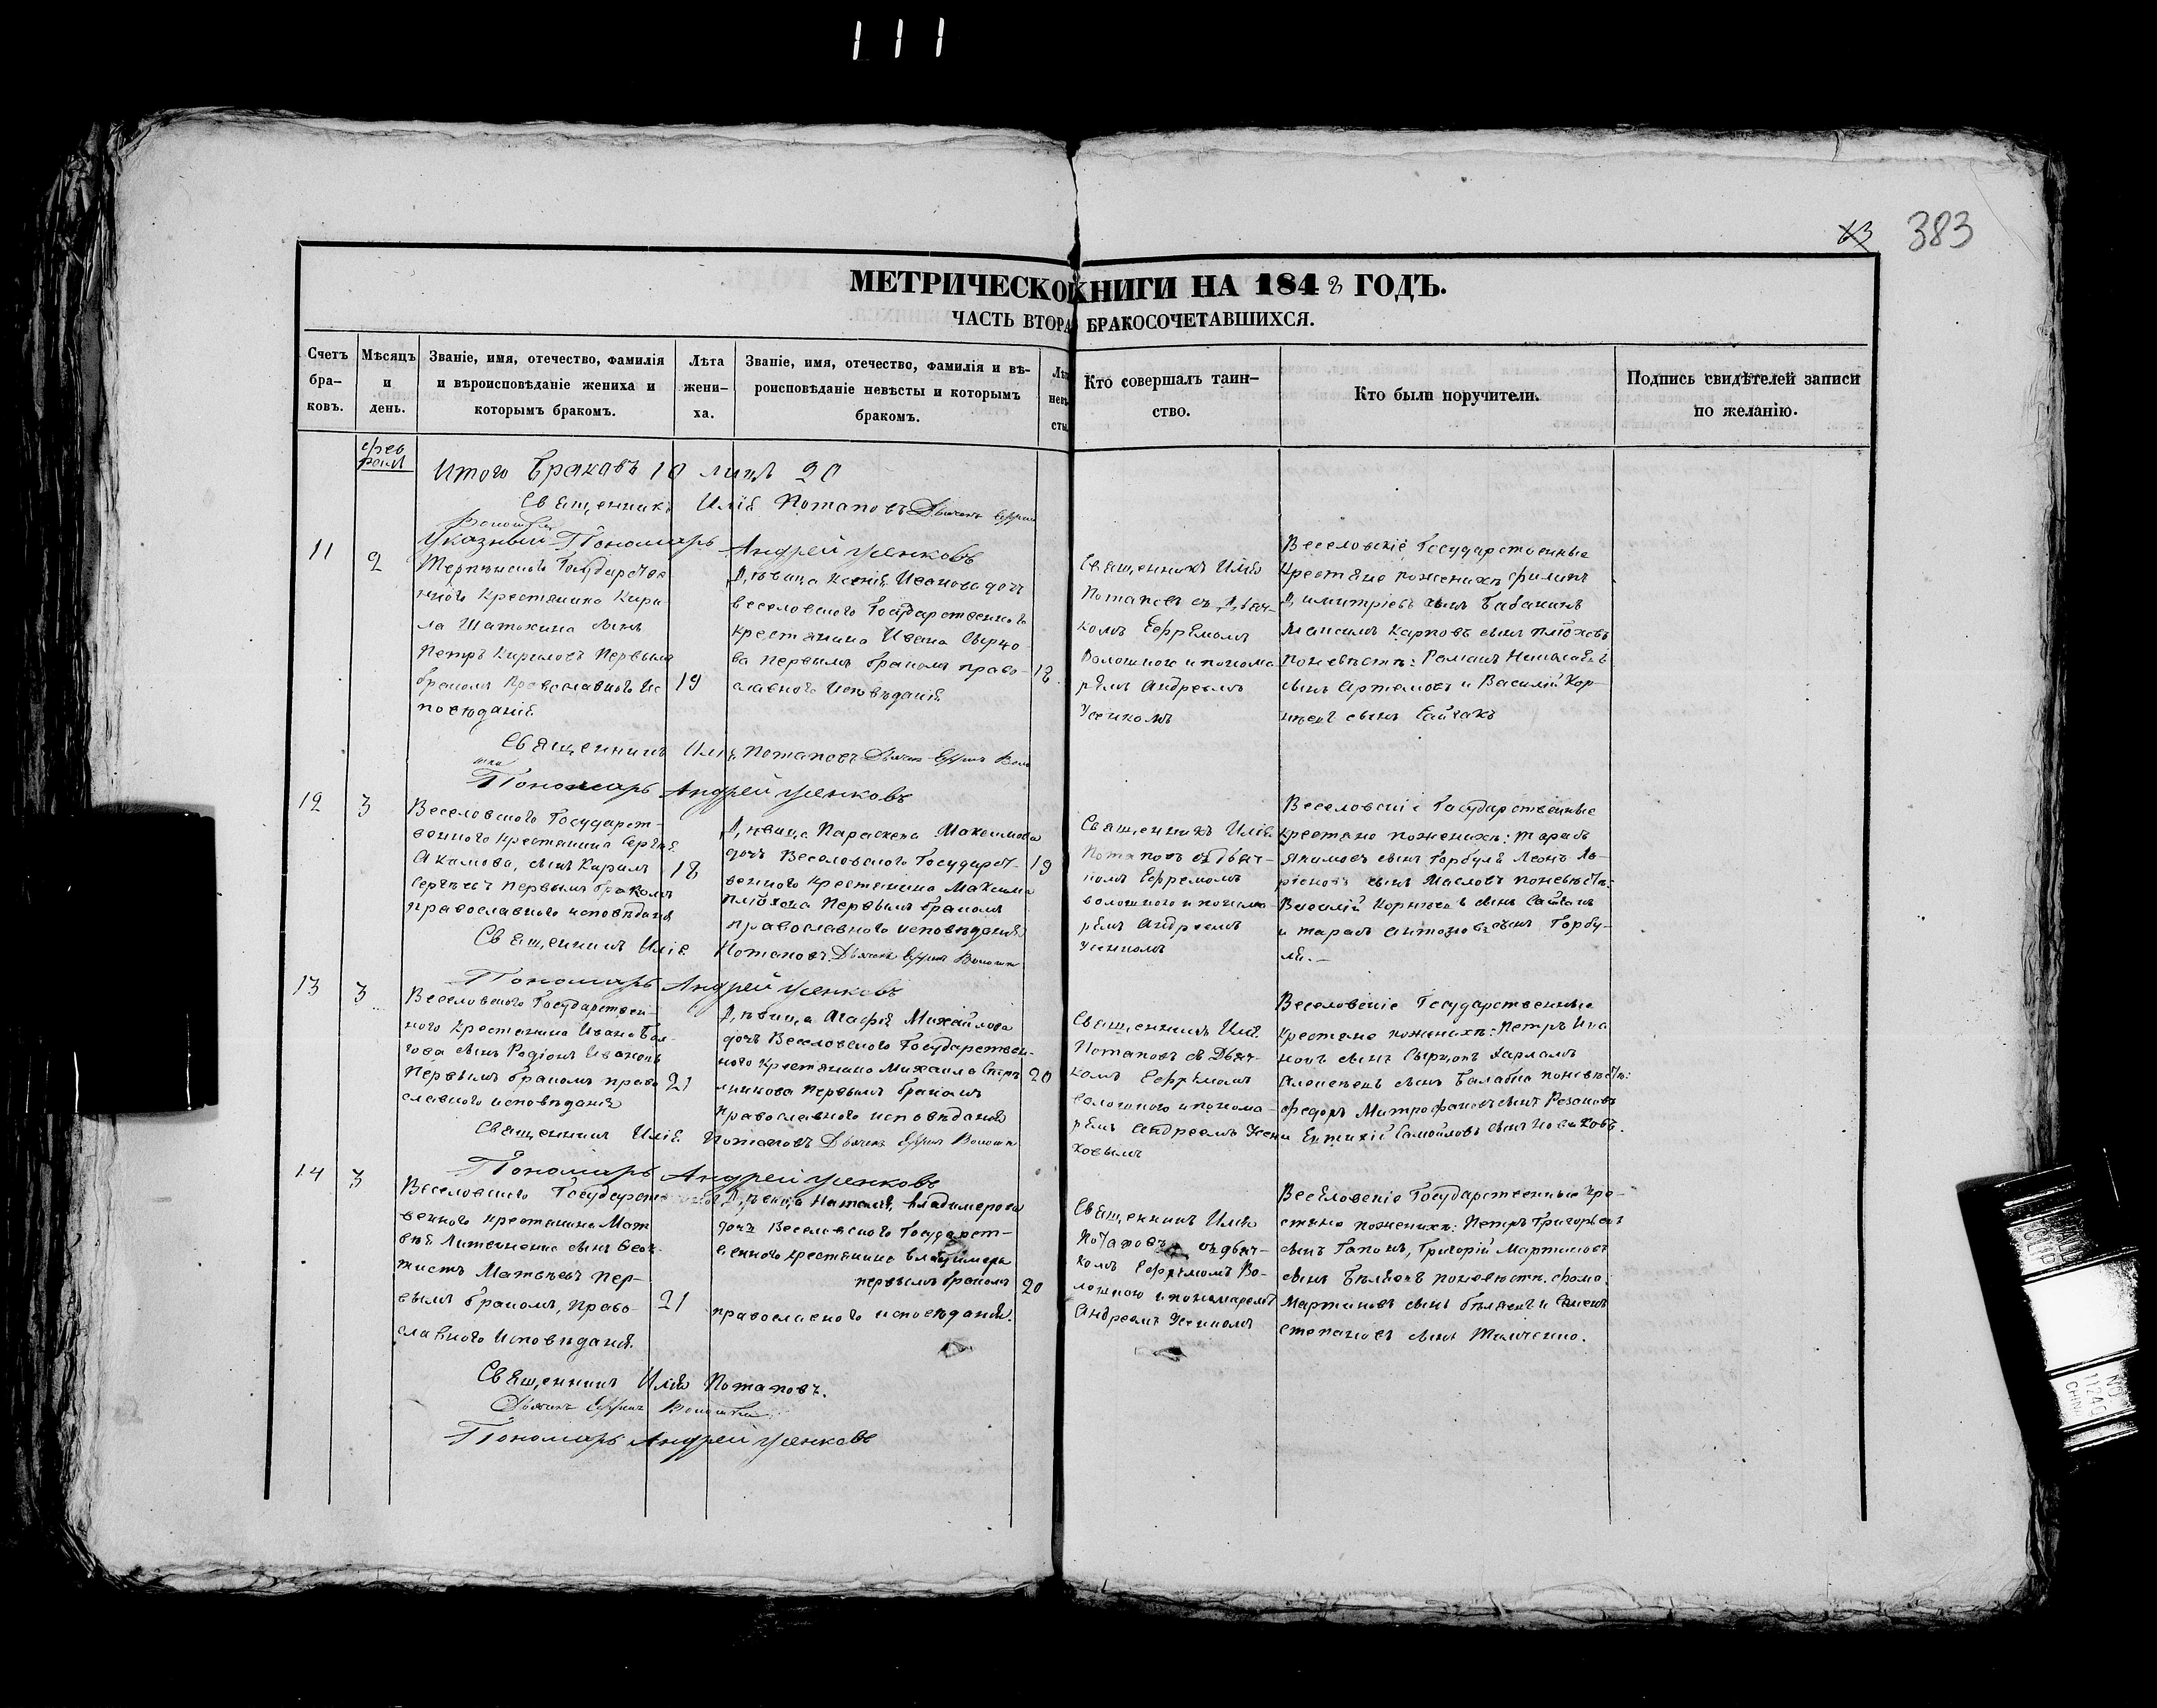 383
МЕТРИЧЕСКОЙ КНИГИ НА 1848 ГОДЪ.
ЧАСТЬ ВТОРАЯ БРАКОСОЧЕТАВШИХСЯ.
Счетъ бра-
ковъ.
Мѣсяцъ
и
день.
Званіе, имя, отечество, фамилія
и вѣроисповѣданіе жениха и
которымъ бракомъ.
Лѣта
жени-
ха.
Званіе, имя, отечество, фамилія и вѣ-
роисповѣданіе невѣсты и которымъ
бракомъ.
Лѣта
невѣ-
сты.
Кто совершалъ таин-
ство.
Кто были поручители.
Подпись свидѣтелей записи
по желанію.
Итого браковъ 10 лицъ 20
Священникъ Илія Потаповъ Дьячекъ
Указный Пономарь Андрей Усенковъ
11
2
Государствен
ного Крестянина Кири
ла Шатохина сынъ
Петръ Кириловъ Первымъ
бракомъ Православного Ис
повѣданія
19
Дѣвица Ксенія Иванова дочь
Веселовского Государственного
крестянина Ивана
первымъ бракомъ право-
славного Исповѣданія
18
Священникъ Илія
Потаповъ съ Дьяч-
комъ Ефремомъ
Волошкою и понома
рëмъ Андреемъ
Усенкомъ
Веселовскіе Государственные
Крестяне пожениху Филипъ
Димитріевъ сынъ Бабакинъ
Максимъ Карповъ сынъ Плюховъ
поневѣстѣ: Романъ
сынъ Артемовъ и Василій Кор-
нѣевъ сынъ Сайгакъ
Священникъ Илія Потаповъ Дьячекъ
Пономарь Андрей Усенковъ
12
3
Веселовского Государст-
венного Крестянина Сергѣя
Акимова, сынъ Кирилъ
Сергѣевъ Первымъ бракомъ
православного исповѣданія
18
Дѣвица Параскева Максимова
дочь Веселовского Государст-
венного крестянина Максима
Плюхова Первымъ бракомъ
православного исповѣданія
19
Священникъ Илія
Потаповъ съ Дьяч-
комъ Ефремомъ
Волошкою и понома-
рëмъ Андреемъ
Усенкомъ
Веселовскіе Государственные
крестяне пожениху: Тарасъ
Якимовъ сынъ Горбуля Леонъ
сынъ Масловъ поневѣстѣ:
Василій Корнѣевъ сынъ Сайгакъ
и Тарасъ Антоновъ сынъ Горбу-
ля.
Священникъ Илія Потаповъ Дьячекъ
Пономарь Андрей Усенковъ
13
3
Веселовского Государствен-
ного Крестянина Ивана
сынъ Родіонъ Ивановъ
Первымъ бракомъ право
славного исповѣданія
21
Дѣвица Агафія Михайлова
дочь Веселовского Государствен-
ного Крестянина Михаила
Первымъ бракомъ
православного исповѣданія
20
Священникъ Илія
Потаповъ съ Дьяч-
комъ Ефремомъ
Волошкою и понома-
рëмъ Андреемъ Усен
ковымъ
Веселовскіе Государственные
крестяне пожениху: Петръ Ива
новъ сынъ Харламъ
Алексѣевъ сынъ Балаба поневѣстѣ:
Федоръ Митрофановъ сынъ Резановъ
Евтихій Самойловъ сынъ
Священникъ Илія Потаповъ Дьячекъ
Пономарь Андрей Усенковъ
14
3
Веселовского Государст
венного крестянина Мат
вѣя Литвиненка сынъ Феок-
тистъ Матвѣевъ Пер-
вымъ бракомъ, Право-
славного Исповѣданія.
21
Дѣвица Наталія Владимерова
дочь Веселовского Государст-
венного крестянина Владимера
первымъ бракомъ
православного исповѣданія.
20
Священникъ Илія
Потаповъ съ дьяч-
комъ Ефремомъ Во-
лошкою и пономаремъ
Андреемъ Усенкомъ
Веселовскіе Государственные кре-
стяне пожениху: Петръ Григорьевъ
сынъ Гапонъ, Григорій Мартиновъ
сынъ Бѣляевъ поневѣстѣ. Фома
Мартиновъ сынъ Бѣляевъ и
Степановъ сынъ
Священникъ Илія Потаповъ.
Дьячекъ Ефремъ Волошка
Пономарь Андрей Усенковъ